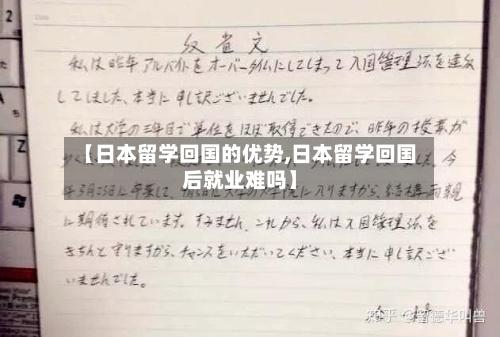 反省文
私は昨年アルバイトをオーバータイムにしてしまって入国管理法を違反
してしました、本当に申し訳ございませんでした。
私は大学の三年目で単位をほぼ取得できたので、昨年の授業が
【日本留学回国的优势,日本留学回国
后就业难吗】
に期待されています。すみません、これから、私は入国管理法を
きちんと守りますから、チャンスをいただいてください、本当に申し訳ござい
ませんでした。
知乎 @留德华叫兽